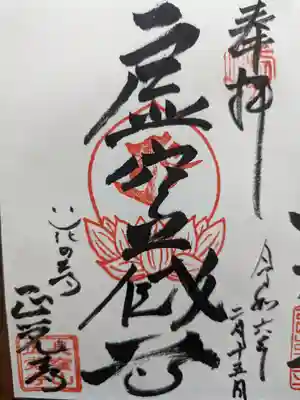 奉拝
令和六年
二月十五日
虚空蔵尊
花の寺
正覚寺